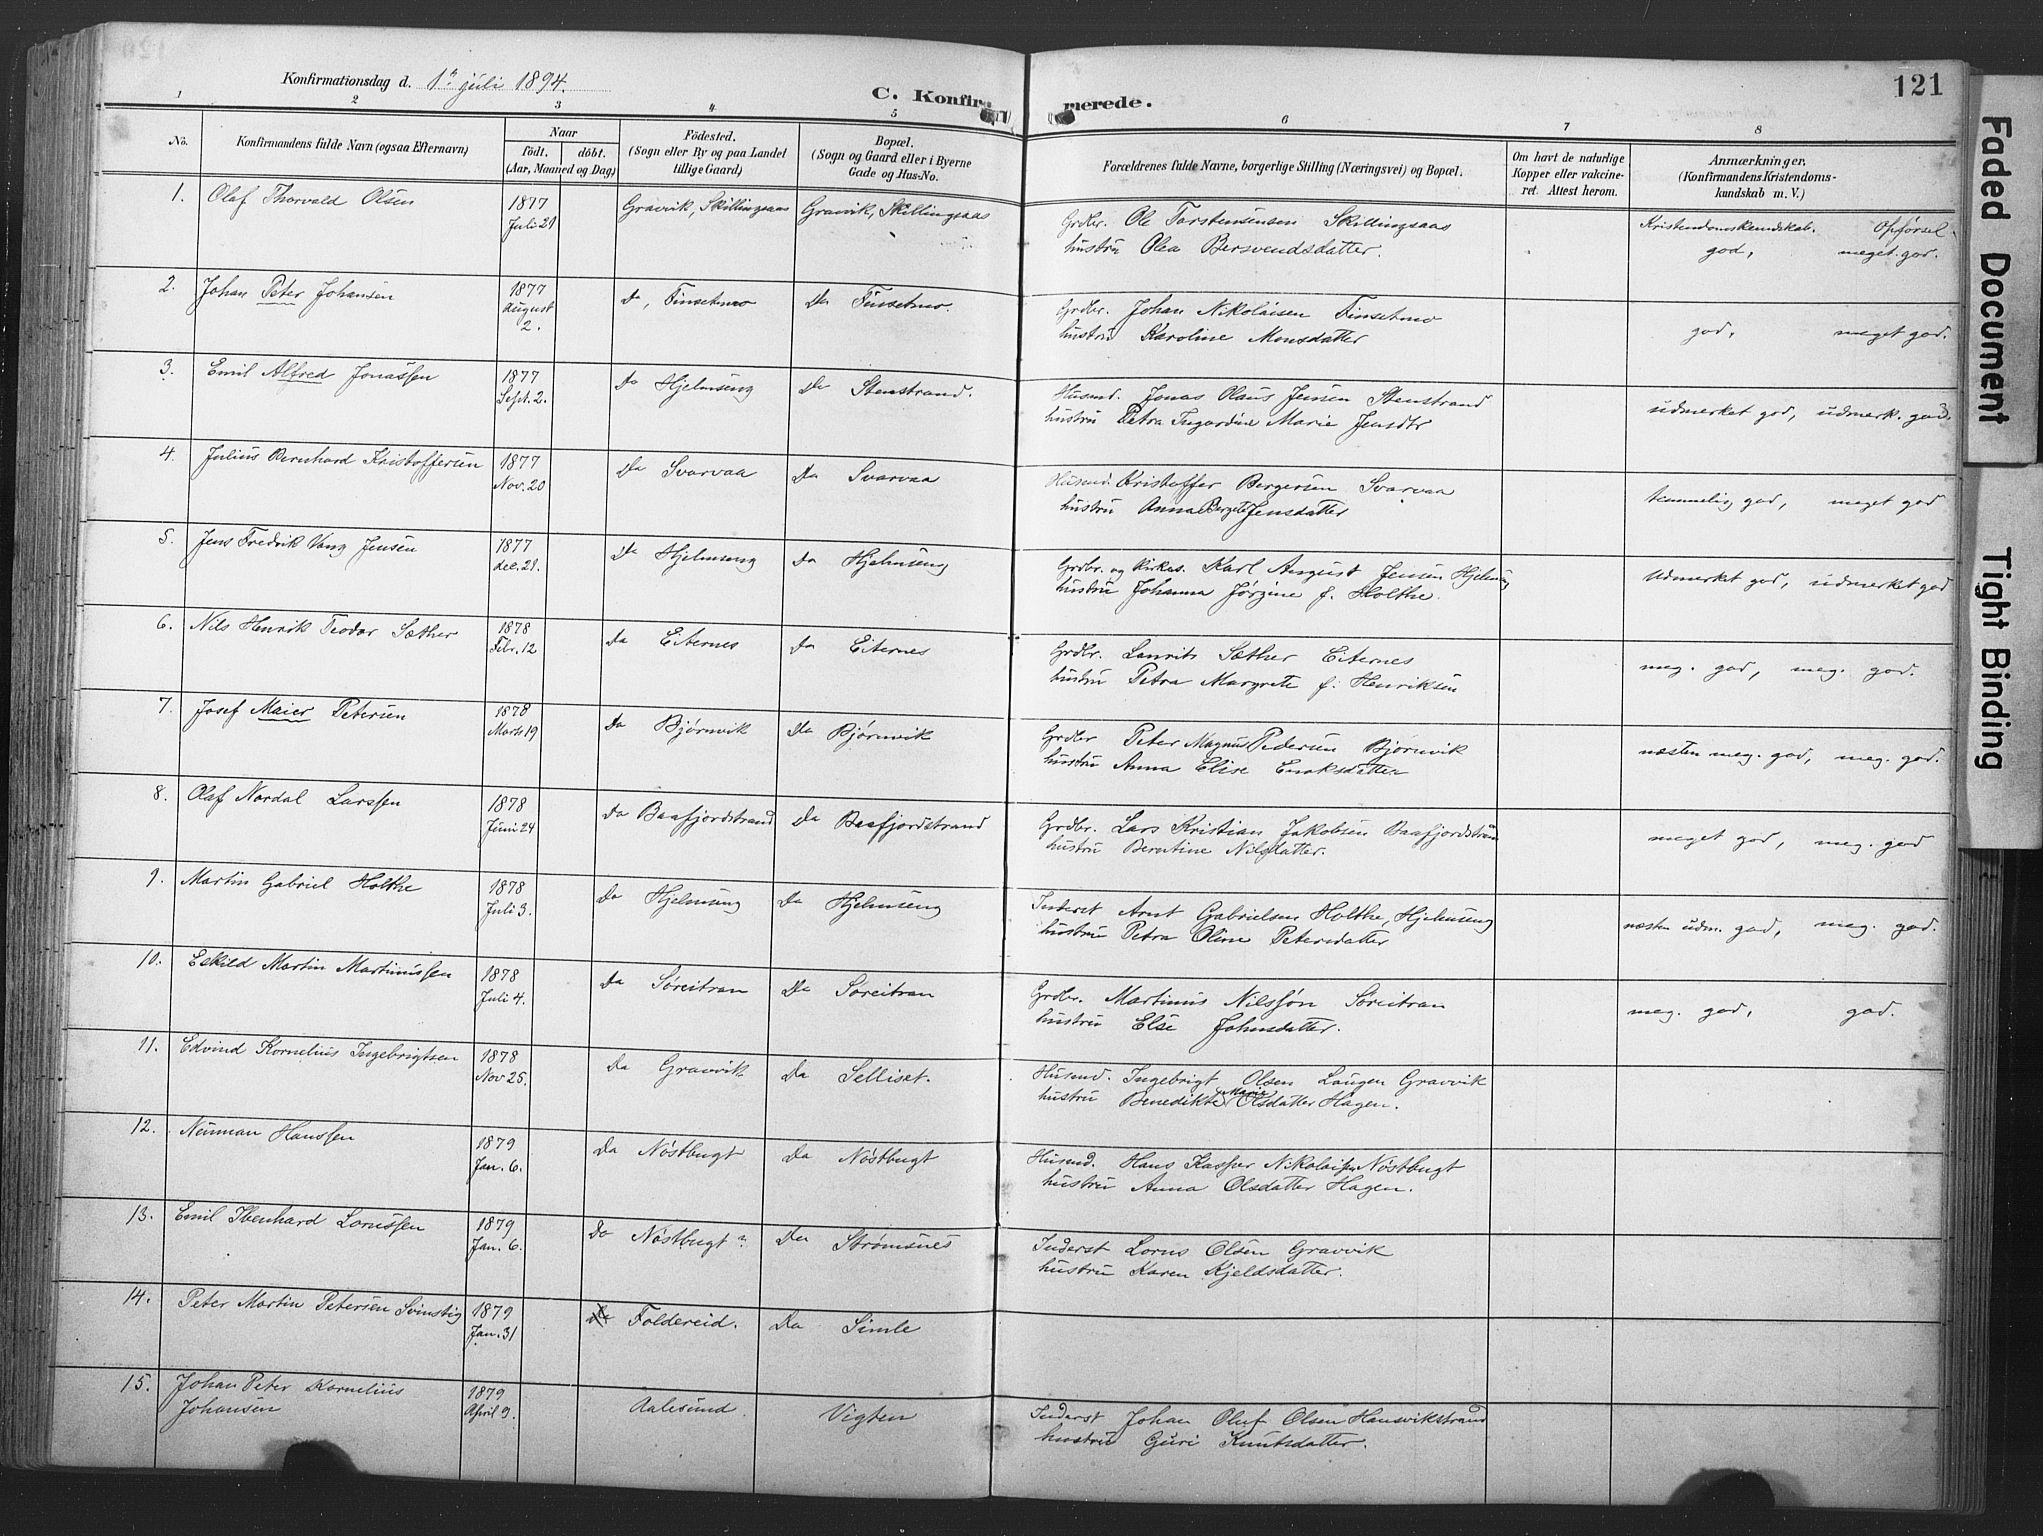 Konfirmationsdag d. 1ste juli 1894.
C. Konfirmerede.
121
1 2 3 4 5 6 7 8
No.
Konfirmandens fulde Navn (ogsaa Efternavn)
Naar
födt. döbt.
(Aar, Maaned og Dag)
Födested.
(Sogn eller By og paa Landet
tillige Gaard)
Bopæl.
(Sogn og Gaard eller i Byerne
Gade og Hus-No.
Forældrenes fulde Navne, borgerlige Stilling (Næringsvei) og Bopæl.
Om havt de naturlige
Kopper eller vakcine-
ret. Attest herom.
Anmærkninger.
(Konfirmandens Kristendoms-
kundskab m. V.)
1. Olaf Thorvald Olsen 1877 Juli 21 Gravvik, Skillingsaas Gravik, Skillingsaas
Grdbr. Ole Torstensensen Skillingsaas
hustru Olea Bersvendsdatter.
Kristendomskundskab. Opførsel.
god, meget god.
2. Johan Peter Johansen 1877 August 2. Do, Finsetmo Do Finsetmo.
Grdbr. Johan Nikolaisen Finsetmo
hustru Karoline Monsdatter
god, meget god.
3. Emil Alfred Jonassen 1877 Sept. 2. Do Hjelmseng Do Stenstrand.
Husmd. Jonas Olaus Jensen Stenstrand
hustru Petra Ingardine Marie Jensdtr
udmerket god, udmerk. god.
4. Julius Bernhard Kristoffersen 1877 Nov. 20 Do Svarvaa Do Svarvaa
Husmd. Kristoffer Bergersen Svarvaa
hustru Anna Bergete Jensdatter
temmelig god, meget god
5. Jens Fredrik Vang Jensen 1877 dec. 21. Do Hjelmseng Do Hjelmseng
Grdbr. og Kirkes. Karl August Jensen Hjelmseng
hustru Johanna Jørgine f. Holthe.
Udmerket god, udmerket god
6. Nils Henrik Teodor Sæther 1878 Febr. 12 Do Eiternes Do Eiternes
Grdbr. Laurits Sæther Eiternes
hustru Petra Margrete f. Henriksen
meg. god, meg. god.
7. Josef Maier Petersen 1878 Marts 19 Do Bjørnvik Do Bjørnvik
Grdbr Peter Magnus Pedersen Bjørnvik
hustru Anna Elise Enoksdatter
næsten meg. god, meg. god.
8. Olaf Nordal Larssen 1878 Juni 24 Do Baafjordstrand Do Baafjordstrand
Grdbr. Lars Kristian Jakobsen Baafjordstran
hustru Berntine Nilsdatter.
meget god, meg. god
9. Martin Gabriel Holthe 1878 Juli 3. Do Hjelmseng Do Hjelmseng
Inderst Arnt Gabrielsen Holthe, Hjelmseng
hustru Petra Oline Petersdatter
næsten udm. god, meg. god.
10. Eskild Martin Martinussen 1878 Juli 4. Do Søreitran Do Søreitran
Grdbr. Martinus Nilssøn Søreitran
hustru Else Johnsdatter.
meg. god, god.
11. Edvind Kornelius Ingebrigtsen 1878 Nov 25. Do Gravvik Do Selliset.
Husmd. Ingebrigt Olsen Laugen Gravvik
hustru Benedikte Marie Olsdatter Hagen.
12. Neuman Hanssen 1879 Jan. 6. Do Nøstbugt Do Nøstbugt
Husmd. Hans Kasper Nikolaisen Nøstbugt
hustru Anna Olsdatter Hagen.
13. Emil Ibenhard Lornssen 1879 Jan. 6. Do Nøstbugt ? Do Strømsnes
Inderst Lorns Olsen Gravvik
hustru Karen Kjeldsdatter.
14. Peter Martin Petersen Svinstig 1879 Jan. 31 Do Foldereid. Do Simle
15. Johan Peter Kornelius
Johansen 1879 April 9. Aalesund Vigten
Inderst Johan Oluf Olsen Hansvikstrand
hustru Guri Knutsdatter.
Faded Document
Tight Binding